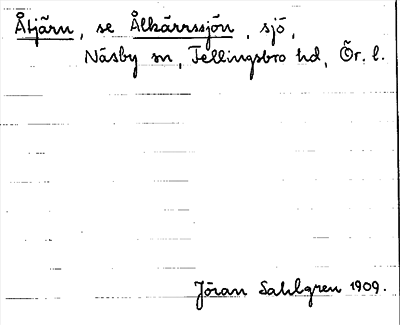 Åtjärn, se Ålkärrssjön, sjö,
Näsby sn, Fellingsbro hd, Ör. l.
Jöran Sahlgren 1909.